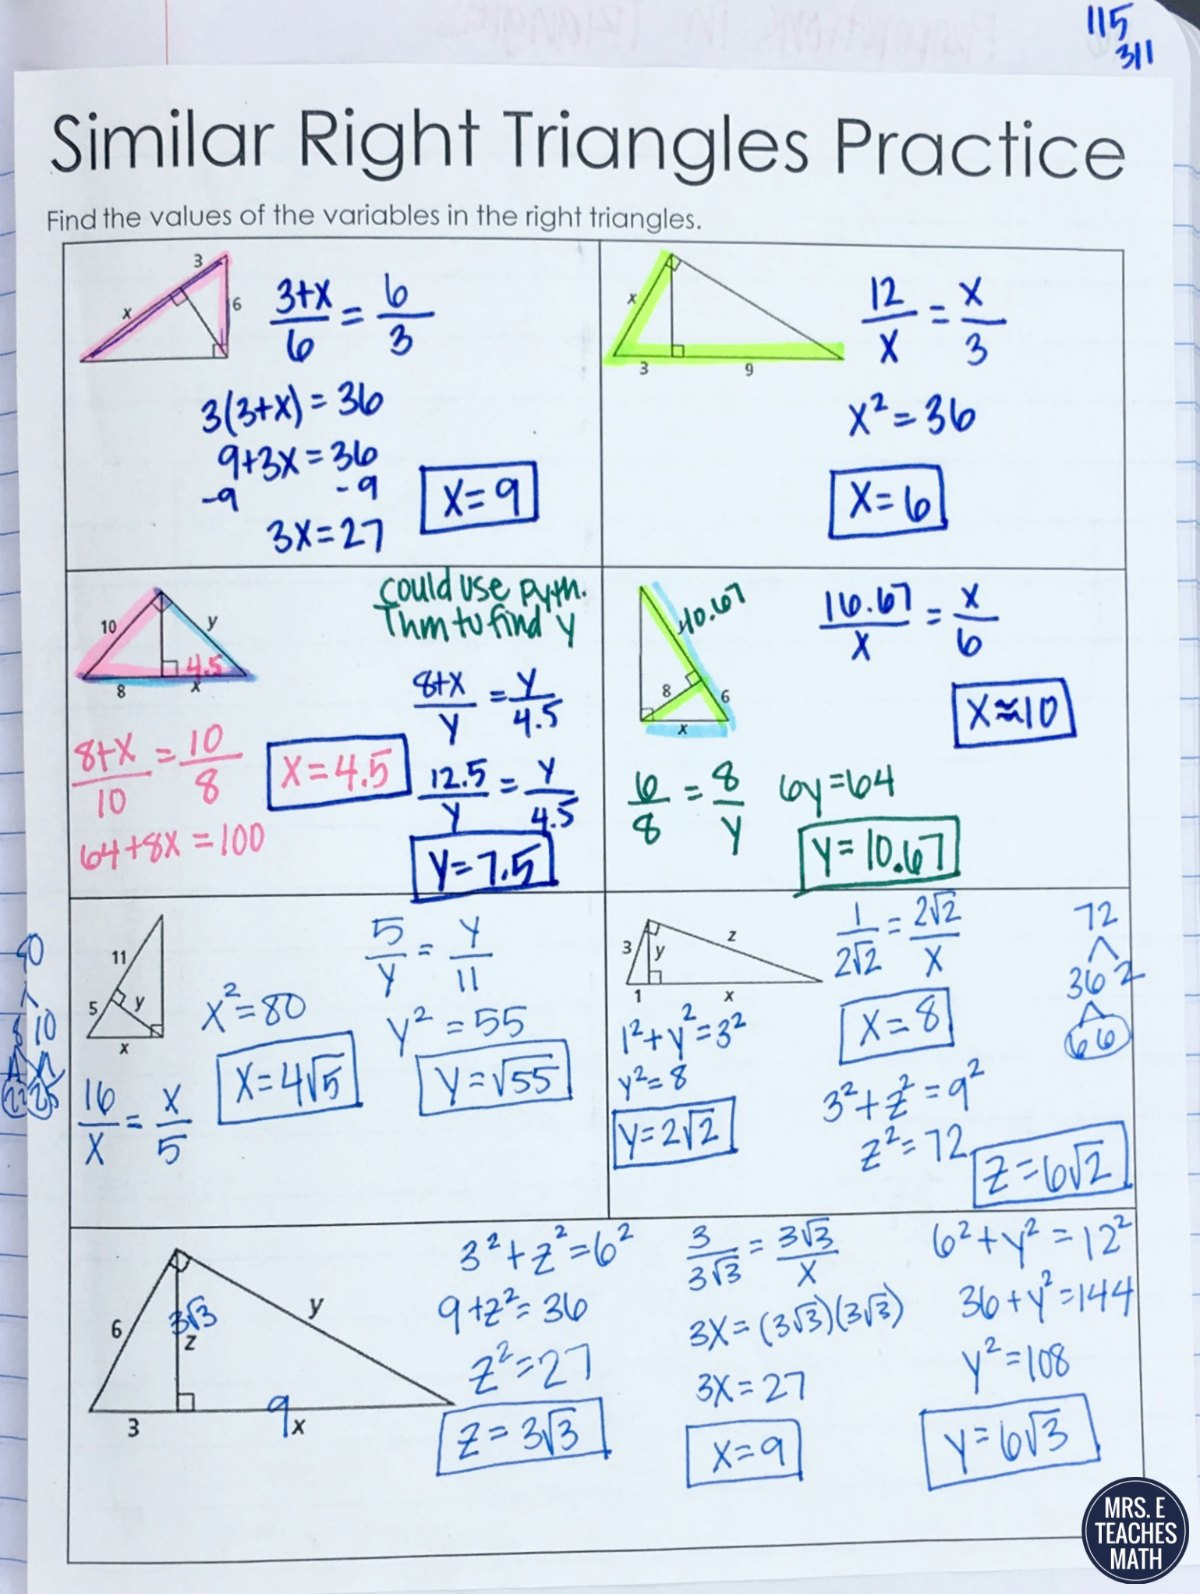 115
311
Similar Right Triangles Practice
Find the values of the variables in the right triangles.
3
x
6
3+x/6 = 6/3
3(3+x) = 36
9+3x = 36
-9 -9
3x = 27
x = 9
x
3
9
12/x = x/3
x² = 36
x = 6
10
y
8
4.5
x
could use pyth.
Thm to find y
8+x/10 = 10/8
64+8x = 100
x = 4.5
8+x/y = y/4.5
12.5/y = y/4.5
y = 7.5
y10.67
8
6
x
16.67/x = x/6
x ≈ 10
6/8 = 8/y
6y = 64
y = 10.67
11
5
y
x
80
8 10
16/x = x/5
x² = 80
x = 4√5
5/y = y/11
y² = 55
y = √55
3
y
z
1
x
1² + y² = 3²
y² = 8
y = 2√2
1/2√2 = 2√2/x
x = 8
3² + z² = 9²
z² = 72
z = 6√2
72
36 2
6 6
6
3√3
z
y
3
9
x
3² + z² = 6²
9 + z² = 36
z² = 27
z = 3√3
3/3√3 = 3√3/x
3x = (3√3)(3√3)
3x = 27
x = 9
6² + y² = 12²
36 + y² = 144
y² = 108
y = 6√3
MRS. E
TEACHES
MATH